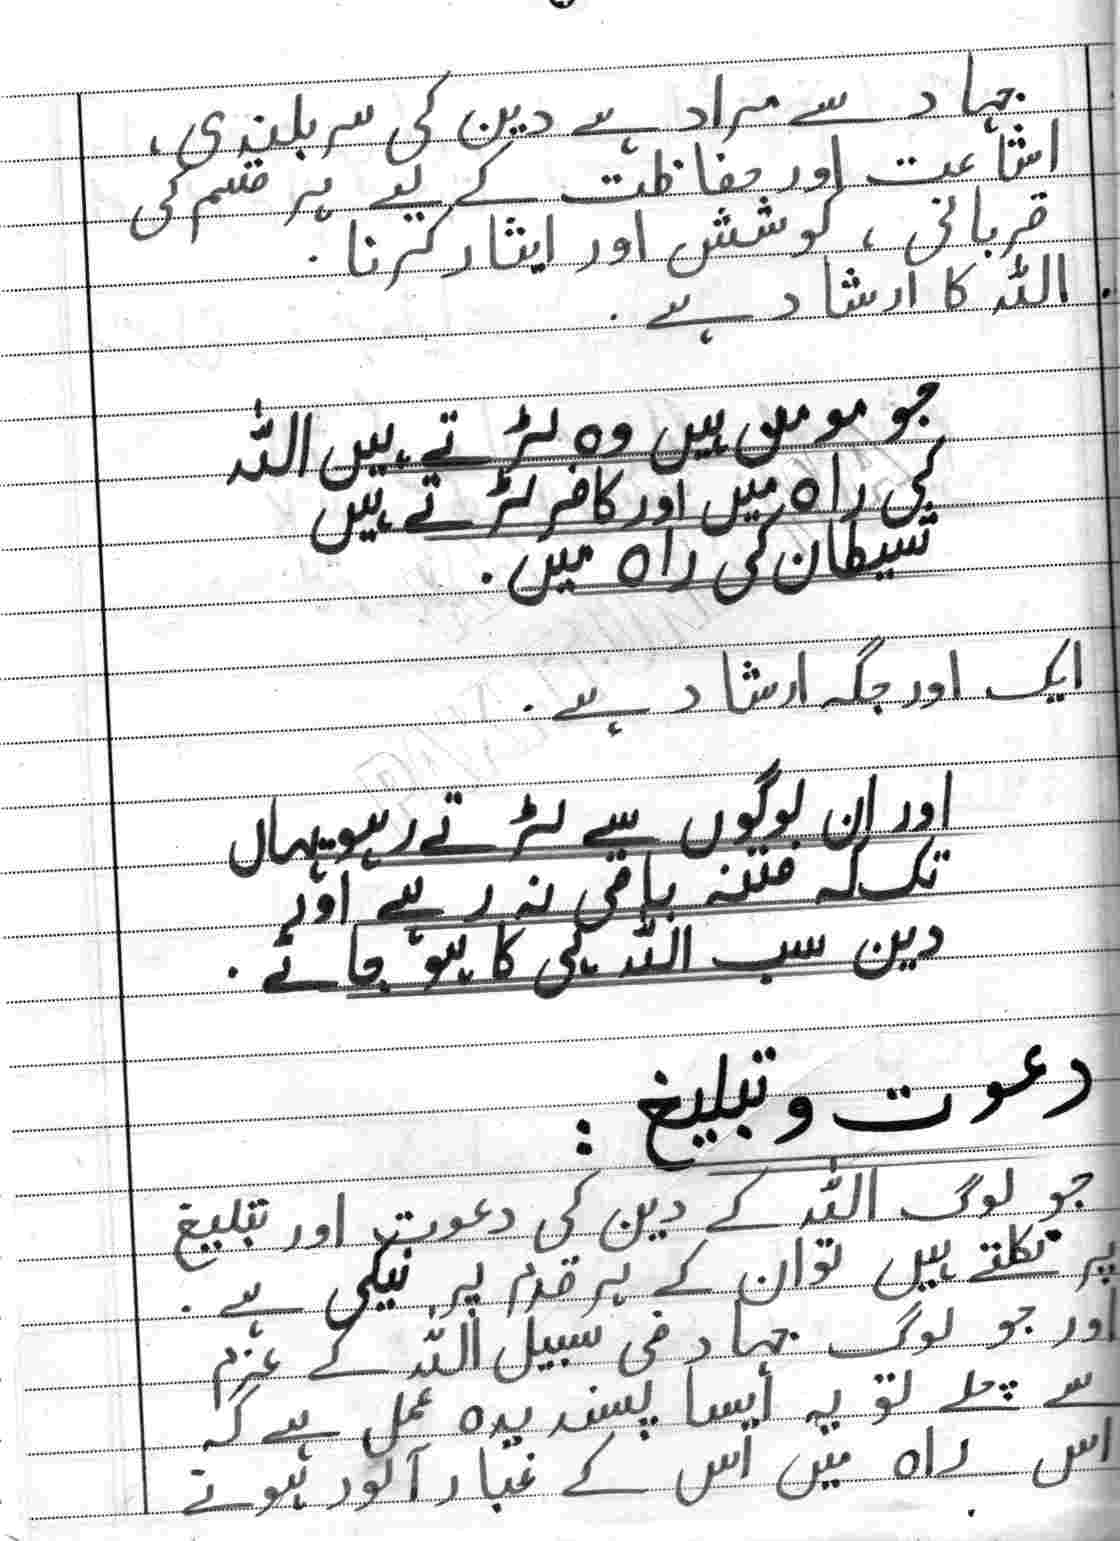 جہاد سے مراد ہے دین کی سربلندی،
اشاعت اور حفاظت کے لیے ہر قسم کی
قربانی، کوشش اور ایثار کرنا۔
اللہ کا ارشاد ہے۔
جو مومن ہیں وہ لڑتے ہیں اللہ
کی راہ میں اور کافر لڑتے ہیں
شیطان کی راہ میں۔
ایک اور جگہ ارشاد ہے۔
اور ان لوگوں سے لڑتے رہو یہاں
تک کہ فتنہ باقی نہ رہے اور
دین سب اللہ ہی کا ہو جائے۔
دعوت و تبلیغ :
جو لوگ اللہ کے دین کی دعوت اور تبلیغ
پر نکلتے ہیں تو ان کے ہر قدم پر نیکی ہے۔
اور جو لوگ جہاد فی سبیل اللہ کے عزم
سے چلے تو یہ ایسا پسندیدہ عمل ہے کہ
اس راہ میں اس کے غبار آلود ہونے